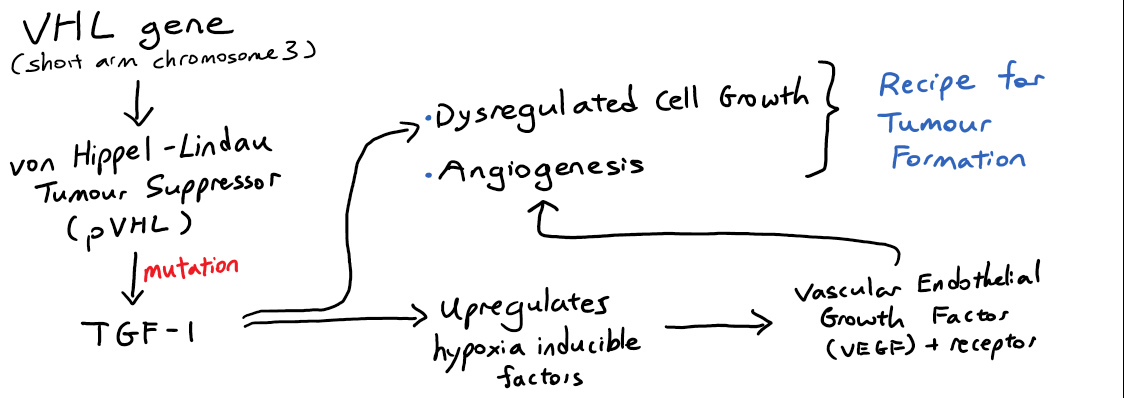 VHL gene
(short arm chromosome 3)
von Hippel-Lindau
Tumour Suppressor
(pVHL)
mutation
TGF-1
• Dysregulated Cell Growth
• Angiogenesis
Recipe for
Tumour
Formation
Upregulates
hypoxia inducible
factors
Vascular Endothelial
Growth Factor
(VEGF) + receptor